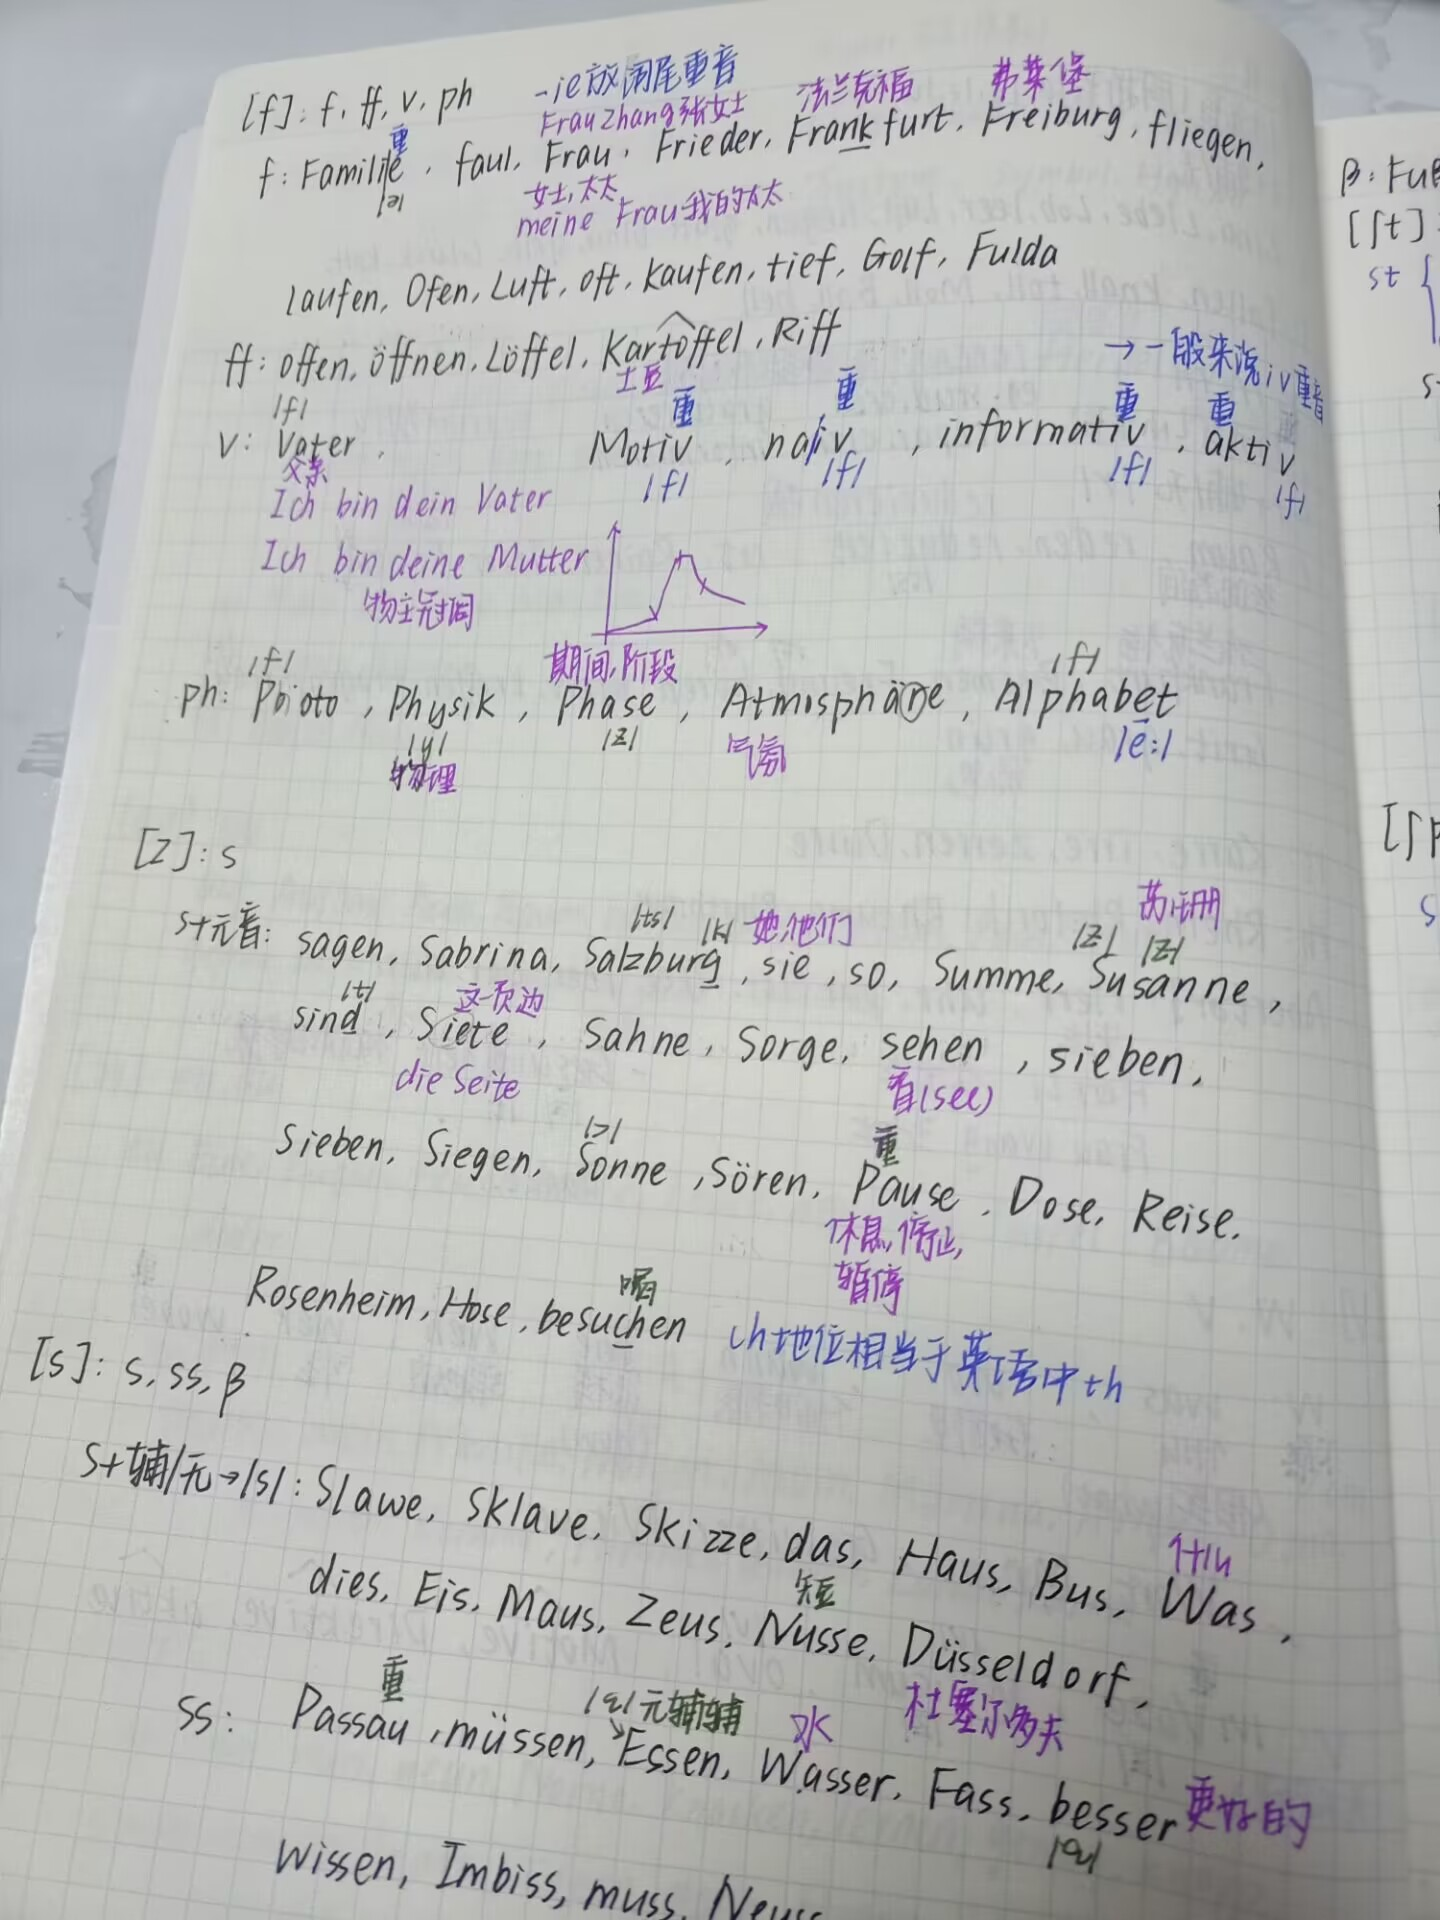 [f]: f, ff, v, ph -ie放词尾重音 法兰克福 弗莱堡
重 Frau Zhang 张女士
f: Familie, faul, Frau, Frieder, Frankfurt, Freiburg, fliegen,
|ə| 女士, 太太
meine Frau 我的太太
laufen, Ofen, Luft, oft, kaufen, tief, Golf, Fulda
ff: offen, öffnen, Löffel, Kartoffel, Riff → 一般来说iv重音
|f| 土豆 重 重 重 重
v: Vater, Motiv, naiv, informativ, aktiv
父亲 |f| |f| |f| |f|
Ich bin dein Vater
Ich bin deine Mutter
物主冠词
|f| 期间, 阶段 |f|
ph: Photo, Physik, Phase, Atmosphäre, Alphabet
|y| |z| 气氛 |e:|
物理
[z]: s
|ts| |k| 她, 他们 |z| |z| 苏珊
s+元音: sagen, Sabrina, Salzburg, sie, so, Summe, Susanne,
|t| 这一页, 边
sind, Siete, Sahne, Sorge, sehen, sieben,
die Seite 看(see)
|ɔ| 重
Sieben, Siegen, Sonne, Sören, Pause, Dose, Reise,
休息, 停止,
暂停
喝
Rosenheim, Hose, besuchen ch地位相当于英语中th
[s]: s, ss, β
s+辅/无→|s|: Slawe, Sklave, Skizze, das, Haus, Bus, Was,
dies, Eis, Maus, Zeus, Nusse, Düsseldorf,
短
重 |ε|元辅辅 水 杜塞尔多夫
ss: Passau, müssen, Essen, Wasser, Fass, besser 更好的
wissen, Imbiss, muss, Neuss
β: Fuß
[ʃt]:
st